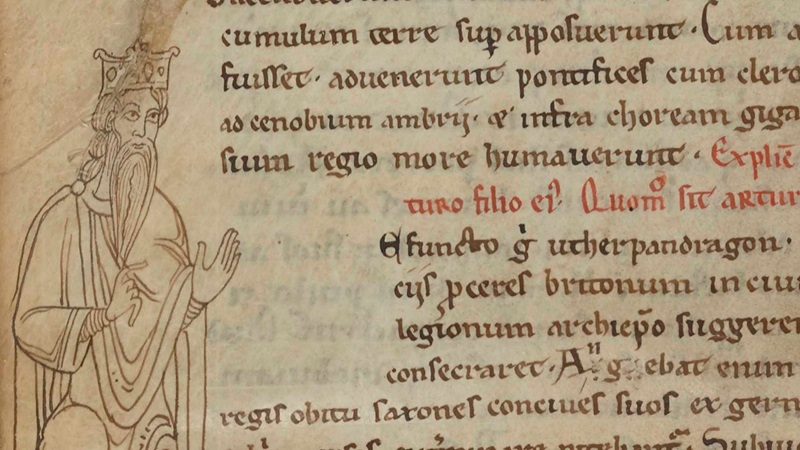 cumulum terre suꝑ apposuerunt. Cum a
fuisset. aduenerunt pontifices cum clero
ad cenobium ambrij. & infra choream giga
sium regio more humauerunt. Explic̄
turo filio ei'. Quom° sit artur
Efuncto g̊ utherpandragon.
cijs ꝓceres britonum in ciui
legionum archiep̄o suggere
consecraret. An g. ebat enim
regis obitu saxones conciues suos ex germ